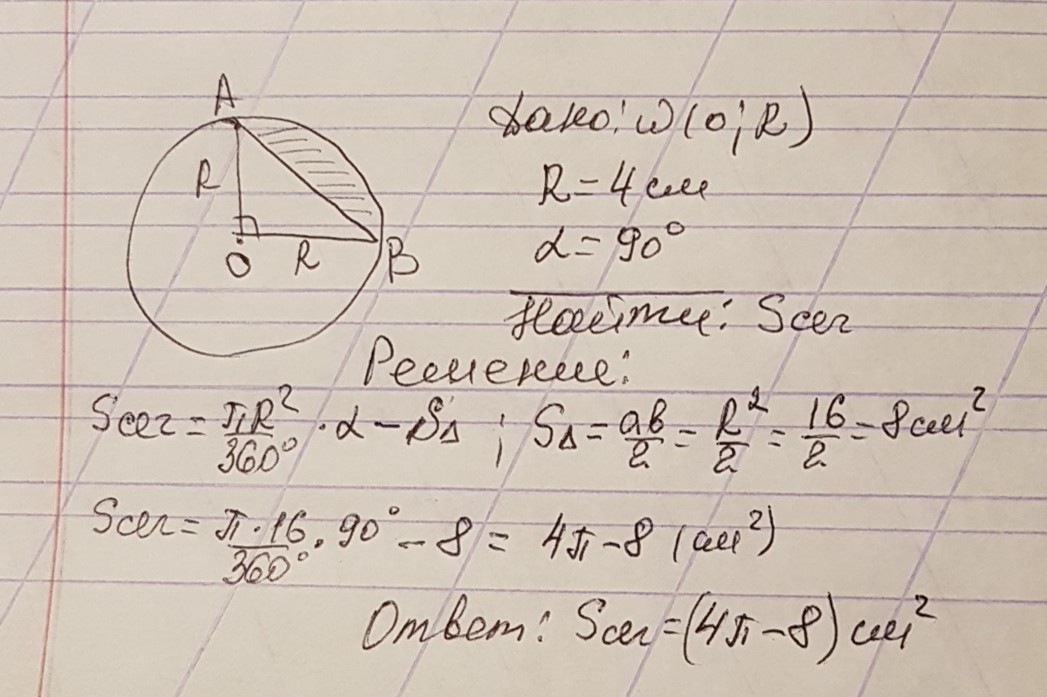 A
R
O
R
B
Дано: ω(o; R)
R = 4 см
α = 90°
Найти: Sсег
Решение:
Sсег = πR²/360° · α − S∆ ; S∆ = ab/2 = R²/2 = 16/2 = 8 см²
Sсег = π·16/360° · 90° − 8 = 4π − 8 (см²)
Ответ: Sсег = (4π − 8) см²